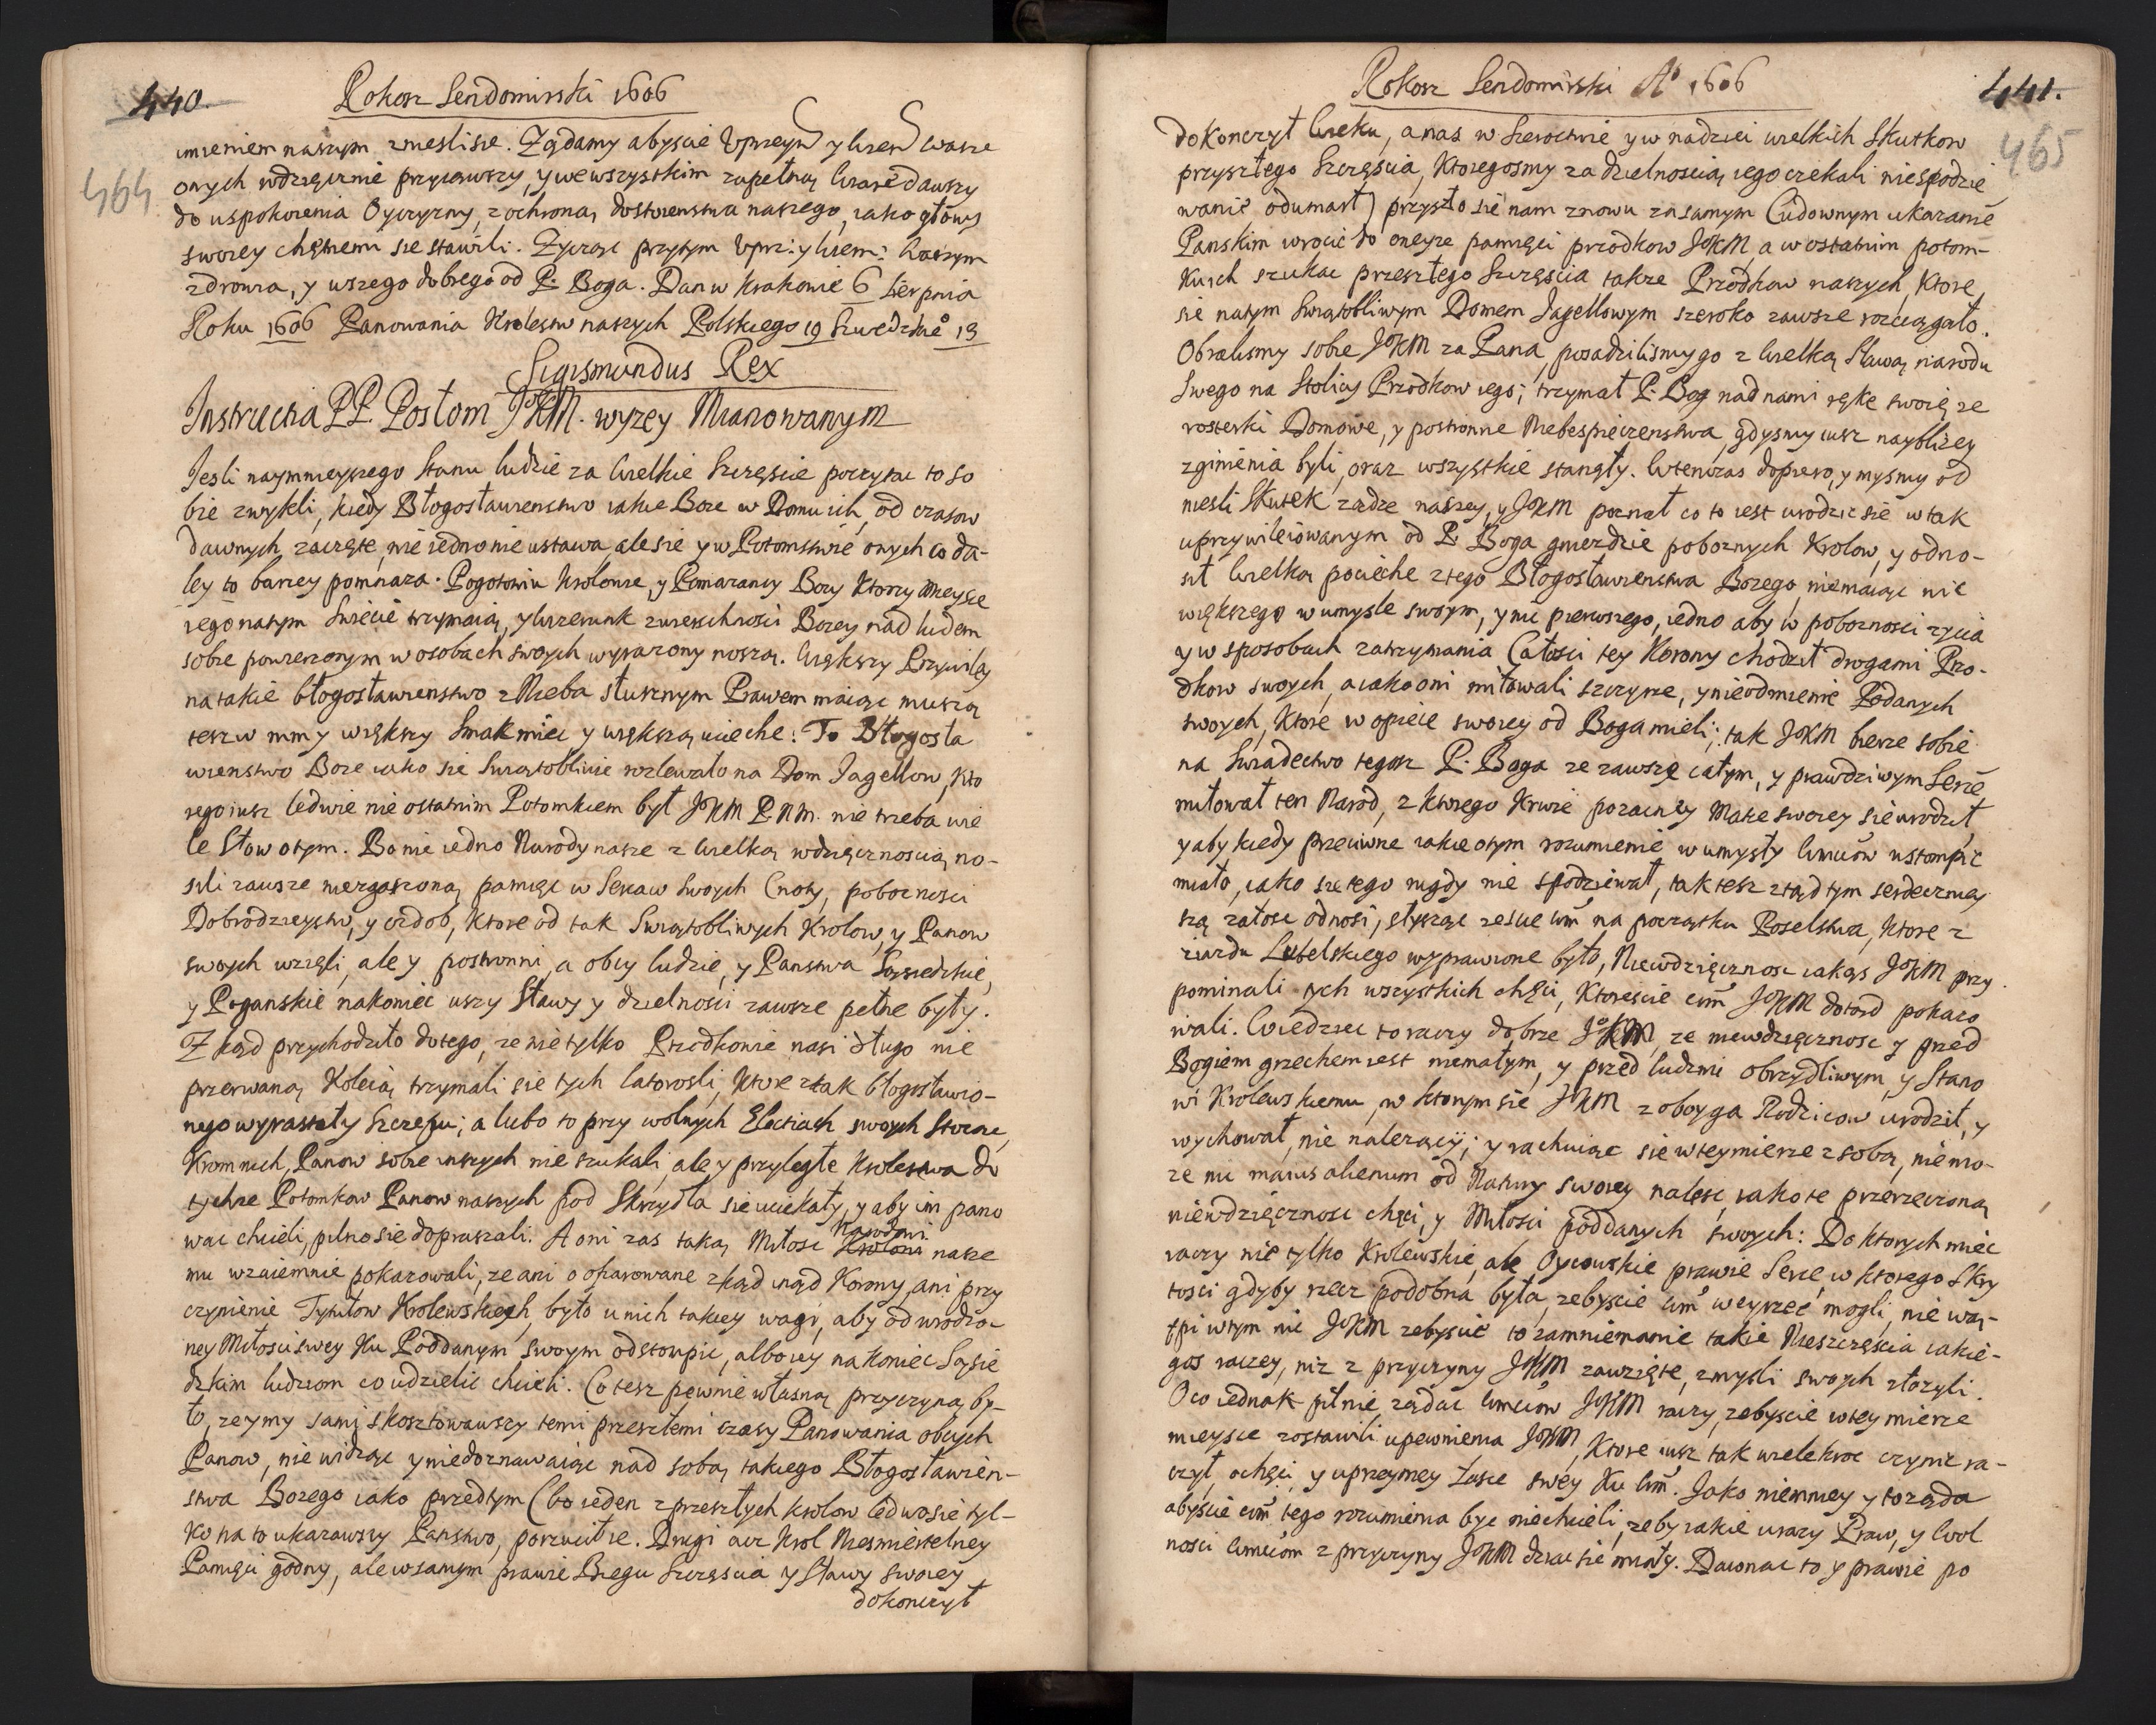 440.
Rokosz Sendomirski 1606
464
imieniem naszym zmeslisie. Ządamy abyscie Uprzeym y Wiern wasze
onych wdzięcznie przyiąwszy, y we wszystkim zupełną wiare dawszy
do uspokoienia Oyczyzny, z ochroną dostoienstwa naszego, iako głowy
swoiey chętnemi sie stawili. Zycząc przytym Uprz: y wiern: waszym
zdrowia, y wszego dobrego od P. Boga. Dan w Krakowie 6 Sierpnia
Roku 1606 Panowania Krolestw naszych Polskiego 19 Szwedzkie° 13
Sigismundus Rex
Instructia PP. Posłom JKM. wyzey Mianowanym
Jesli naymnieyszego Stanu ludzie za wielkie Szczęscie poczytac to so
bie zwykli, kiedy Błogosławienstwo iakie Boze w Domu ich, od czasow
dawnych zaczęte, nie iedno nie ustawa, ale sie y w Potomstwie onych co da-
ley to barzey pomnaza. Pogotowiu Krolowie, y Pomazancy Bozy ktorzy mieysce
iego na tym Swiecie trzymaią, y wizerunk zwierzchnosci Bozey nad ludem
sobie powierzonym w osobach swoych wyrazony noszą. Większy Przywiley
na takie błogosławienstwo z Nieba słusznym Prawem maiąc muszą
tesz w nim y większy Smak miec y większą uciechę: To Błogosła
wienstwo Boze iako sie Swiątobliwie rozlewało na Dom Jagellow, kto
rego iusz ledwie nie ostatnim Potomkiem był JKM P.N.M. nie trzeba wie
le Słow o tym. Bo nie iedno Narody nasze z wielką wdzięcznoscią no-
sili zawsze niezgaszoną pamięc w Sercaw Swoych Cnoty, poboznosci
Dobrodzieystw, y ozdob, ktore od tak Swiątobliwych Krolow, y Panow
swoych wzięli, ale y postronni, a obcy ludzie, y Panstwa Sąsiedzkie,
y Poganskie nakoniec uszy Sławy y dzielnosci zawsze pełne były.
Z kąd przychodziło do tego, ze nie tylko Przodkowie nasi długo nie
przerwaną Koleią trzymali sie tych latorosli, ktore z tak błogosławio-
nego wyrastały Szczepu; a lubo to przy wolnych Electiach swoych Stoiąc,
Krom nich, Panow sobie inszych nie szukali, ale y przyległe Krolestwa do
tychze Potomkow Panow naszych pod Skrzydła sie uciekały, y aby im pano
wac chcieli, pilno sie dopraszali. A oni zas taką Miłosc Narodowi nasze
mu wzaiemnie pokazowali, ze ani o ofiarowane zkąd inąd Korony, ani przy
czynienie Tytułow Krolewskich, było u nich takiey wagi, aby od wrodzo-
ney Miłosci swey Ku Poddanym swoym odstompic, albo iey na Koniec Sąsie
dzkim ludziom co udzielic chcieli. Co tesz pewnie własną przyczyną by-
ło, ze y my sami skosztowawszy temi przeszłemi czasy Panowania obcych
Panow, nie widząc y nie doznawaiąc nad sobą takiego Błogosławien-
stwa Bozego iako przedtym (bo ieden z przeszłych Krolow ledwo sie tyl-
ko na to ukazawszy Panstwo, porzucił ie. Drugi acz Krol Niesmiertelney
Pamięci godny, ale w samym prawie Biegu Szczęscia y Sławy swoiey
dokonczył
Rokosz Sendomirski A° 1606
441.
465
dokonczył wieku, a nas w Sieroctwie y w nadziei wielkich Skutkow
przyszłego Szczęscia, Ktoregosmy za dzielnoscią iego czekali niespodzie
wanie odumarł) przyszło sie nam znowu za samym Cudownym ukazanie
Panskim wrocic do oneyze pamięci przodkow JKM, a w ostatnim potom-
kuich szukac przeszłego Szczęscia takze Przodkow naszych, Ktore
sie na tym Swiątobliwym Domem Jagellowym szeroko zawsze rozciągało.
Obralismy sobie JKM za Pana, posadzilismy go z wielką Sławą narodu
Swego na Stolicy Przodkow iego; trzymał P. Bog nad nami rękę swoię ze
rosterki Domowe, y postronne Niebespieczenstwa, gdysmy iusz nayblizey
zginienia byli, oraz wszystkie stanęły. Wtenczas dopiero, y mysmy od
niesli Skutek ządze naszey, y JKM poznał co to iest urodzic sie w tak
uprzywileiowanym od P. Boga gniezdzie poboznych Krolow, y odno-
sił wielką pocieche z tego Błogosławienstwa Bozego, nie maiąc nic
większego w umysle swoym, y nic pierwszego, iedno aby w poboznosci zycia
y w sposobach zatrzymania Całosci tey Korony chodził drogami Prz-
odkow swoych, a iako oni miłowali szczyrze, y nieodmiennie Podanych
swoych, Ktore w opiece swoiey od Boga mieli; tak JKM bierze sobie
na Swiadectwo tegosz P. Boga ze zawsze całym, y prawdziwym Serce
miłował ten Narod, z ktorego Krwie pozacney Matce swoiey sie urodził,
y aby kiedy przeciwne iakie o tym rozumienie w umysły Wmciow ustompic
miało, iako sie tego nigdy nie spodziewał, tak tesz z tąd tym serdecznie
szą załosc odnosi, słysząc zescie Wm̃ na początku Poselstwa, ktore z
ziazdu Lubelskiego wyprawione było, Niewdzięcznosc iakąs JKM przy
pominali tych wszystkich chęci, Ktorescie Wm̃ JKM dotąd pokazo
wali. Wiedziec to raczy dobrze JKM, ze niewdzięcznosc y przed
Bogiem grzechem iest niemałym, y przed ludzmi obrzydliwym, y Stano
wi Krolewskiemu, w ktorym sie JKM z oboyga Rodzicow urodził, y
wychował, nie nalezący; y rachuiąc sie w teymierze z sobą, nie mo-
ze nic maius alienum od Natury swoiey nalesc, iako te przerzeczoną
niewdzięcznosc chęci, y Miłosci poddanych swoych: Do ktorych miec
raczy nie tylko Krolewskie, ale Oycowskie prawie Serce, w ktorego Skry
tosci gdyby rzecz podobna była, zebyscie Wm̃ weyrzec mogli, nie wąt-
tpi w tym nic JKM zebyscie to zamniemanie takie Nieszczęscia iakie-
gos raczey, niz z przyczyny JKM zawzięte, z mysli swoych złozyli.
O co iednak pilnie ządac Wmciow JKM raczy, zebyscie w tey mierze
mieysce zostawili upewnienia JKM, Ktore iusz tak wielekroc czynic ra-
czył, o chęci y uprzeymey Łasce swey Ku Wm̃. Jako niemniey y to ząda
abyscie Wm̃ tego rozumienia byc niechcieli, zeby iakie urazy Praw, y Wol
nosci Wmciom z przyczyny JKM dziac sie miały. Dawnac to y prawie po